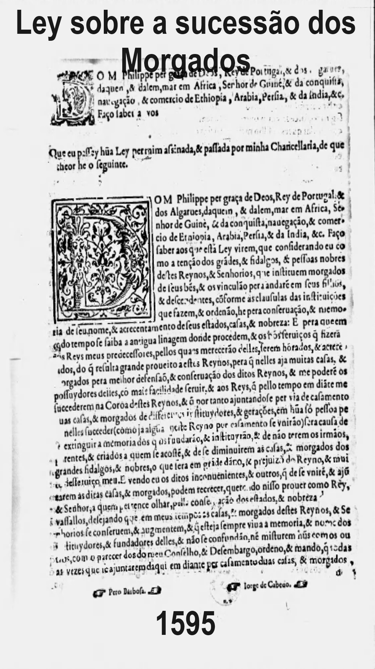 Ley sobre a sucessão dos
Morgados
DOM Philippe per graça de Deos, Rey de Portugal, & dos
daquen, & dalem, mar em Africa, Senhor de Guiné, & da conquista,
nauegação, & comercio de Ethiopia, Arabia, Persia, & da India, &c.
Faço saber a vos
Que eu passey hũa Ley per mim assinada, & passada por minha Chancellaria, de que
theor he o seguinte.
DOM Philippe per graça de Deos, Rey de Portugal, &
dos Algarues, daquen, & dalem, mar em Africa, Se-
nhor de Guiné, & da conquista, nauegação, & comer-
cio de Etniopia, Arabia, Persia, & da India, &c. Faço
saber aos que esta Ley virem, que considerando eu co
mo a tenção dos grãdes, & fidalgos, & pessoas nobres
destes Reynos, & Senhorios, que instituem morgados
de seus bẽs, & os vinculão pera andarẽ em seus filhos,
& descendentes, cõforme as clausulas das instituições
que fazem, & ordenão, he pera conseruação, & memo-
ria de seu nome, & acrecentamento de seus estados, casas, & nobreza: E pera que em
todo tempo se saiba a antigua linagem donde procedem, & os bõs seruiços q̃ fizerã
aos Reys meus predecessores, pellos quaes merecerão delles, serem hõrados, & acrece
ados, do q̃ resulta grande proueito a estes Reynos, pera q̃ nelles aja muitas casas, &
morgados pera melhor defensaõ, & conseruação dos ditos Reynos, & me poderẽ os
possuydores delles, cõ mais facilidade seruir, & aos Reys, q̃ pello tempo em diãte me
succederem na Coroa destes Reynos, & o por tanto ajuntandose per via de casamento
duas casas, & morgados de differentes instituydores, & gerações, em hũa só pessoa pe
nelles succeder (como ja algũas neste Reyno por casamento se vnirão) sera causa de
extinguir a memoria dos q̃ os fundarão, & instituyrão, & de não terem os irmãos,
parentes, & criados a quem se acostẽ, & de se diminuirem as casas, & morgados dos
grandes fidalgos, & nobres, o que sera em grãde dano, & prejuizo do Reyno, & meu
desseruiço, meu. E vendo eu os ditos inconuenientes, & outros, q̃ de se vnirẽ, & ajũ
tarem as ditas casas, & morgados, podem recrecer, querendo nisso prouer como Rey,
& Senhor, a quem pertence olhar, pella conseruação dos estados, & nobreza
vassallos, desejando que em meus tempos as casas, & morgados destes Reynos, & Se
nhorios se conseruem, & augmentem, & q̃ esteja sempre viua a memoria, & nome dos
instituydores, & fundadores delles, & não se confundão, nẽ misturem hũs com os
outros, com o parecer dos do meu Conselho, & Desembargo, ordeno, & mando, q̃ todas
as vezes que se ajuntarem daqui em diante per casamento duas casas, & morgados,
Pero Barbosa. Jorge de Cabedo.
1595